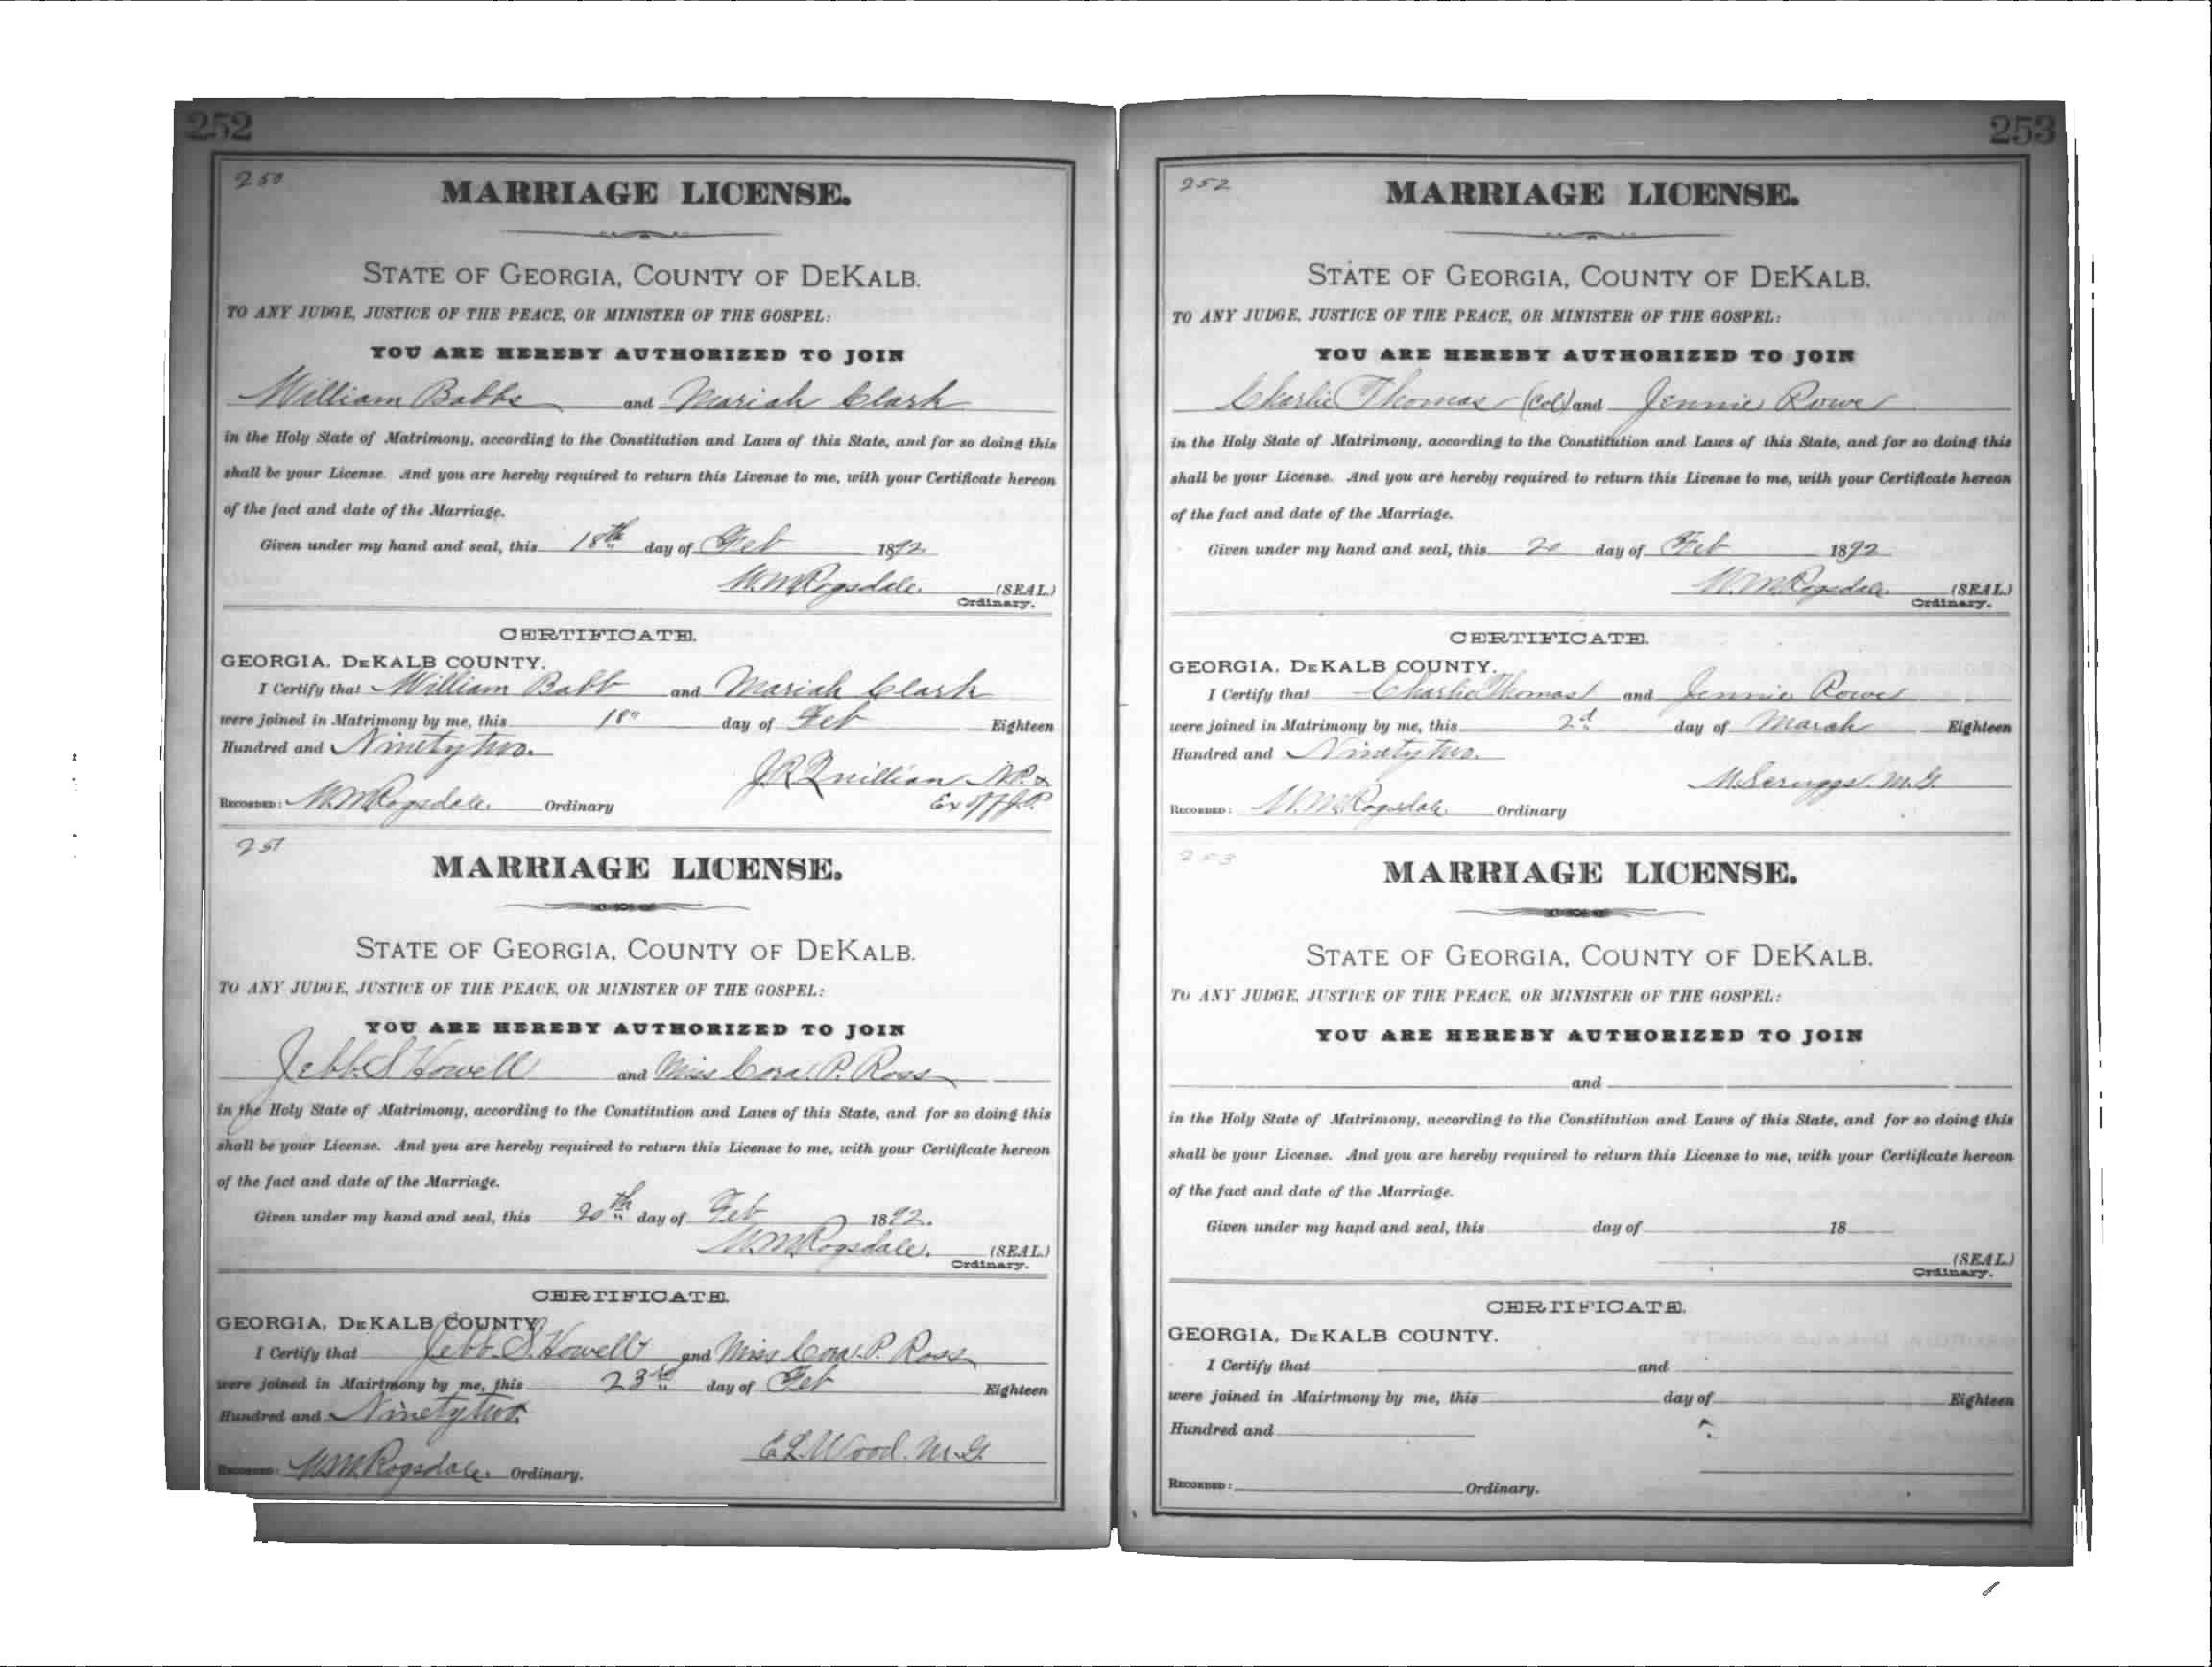 252
250
MARRIAGE LICENSE.
STATE OF GEORGIA, COUNTY OF DEKALB.
TO ANY JUDGE, JUSTICE OF THE PEACE, OR MINISTER OF THE GOSPEL:
YOU ARE HEREBY AUTHORIZED TO JOIN
William Babbs and Mariah Clark
in the Holy State of Matrimony, according to the Constitution and Laws of this State, and for so doing this
shall be your License. And you are hereby required to return this License to me, with your Certificate hereon
of the fact and date of the Marriage.
Given under my hand and seal, this 18th day of Feb 1892.
W.M Ragsdale. (SEAL.)
Ordinary.
CERTIFICATE.
GEORGIA, DEKALB COUNTY.
I Certify that William Babb and Mariah Clark
were joined in Matrimony by me, this 18" day of Feb Eighteen
Hundred and Ninety two.
J.R. Quillian N.P. &
Ex off J.P.
RECORDED: W.M Ragsdale. Ordinary
251
MARRIAGE LICENSE.
STATE OF GEORGIA, COUNTY OF DEKALB.
TO ANY JUDGE, JUSTICE OF THE PEACE, OR MINISTER OF THE GOSPEL:
YOU ARE HEREBY AUTHORIZED TO JOIN
Jebb. S Howell and Miss Cora. P. Ross
in the Holy State of Matrimony, according to the Constitution and Laws of this State, and for so doing this
shall be your License. And you are hereby required to return this License to me, with your Certificate hereon
of the fact and date of the Marriage.
Given under my hand and seal, this 20th day of Feb 1892.
W.M Ragsdale. (SEAL.)
Ordinary.
CERTIFICATE.
GEORGIA, DEKALB COUNTY.
I Certify that Jebb. S. Howell and Miss Cora. P. Ross
were joined in Mairtmony by me, this 23rd day of Feb Eighteen
Hundred and Ninety two.
E.L. Wood. M.G.
RECORDED: W.M Ragsdale. Ordinary.
253
252
MARRIAGE LICENSE.
STATE OF GEORGIA, COUNTY OF DEKALB.
TO ANY JUDGE, JUSTICE OF THE PEACE, OR MINISTER OF THE GOSPEL:
YOU ARE HEREBY AUTHORIZED TO JOIN
Charlie Thomas (Col) and Jennie Rowe
in the Holy State of Matrimony, according to the Constitution and Laws of this State, and for so doing this
shall be your License. And you are hereby required to return this License to me, with your Certificate hereon
of the fact and date of the Marriage.
Given under my hand and seal, this 20 day of Feb 1892
W.M Ragsdale. (SEAL.)
Ordinary.
CERTIFICATE.
GEORGIA, DEKALB COUNTY.
I Certify that Charlie Thomas and Jennie Rowe
were joined in Matrimony by me, this 2d day of March Eighteen
Hundred and Ninety two.
M. Scruggs. M.G.
RECORDED: W.M Ragsdale. Ordinary
253
MARRIAGE LICENSE.
STATE OF GEORGIA, COUNTY OF DEKALB.
TO ANY JUDGE, JUSTICE OF THE PEACE, OR MINISTER OF THE GOSPEL:
YOU ARE HEREBY AUTHORIZED TO JOIN
and
in the Holy State of Matrimony, according to the Constitution and Laws of this State, and for so doing this
shall be your License. And you are hereby required to return this License to me, with your Certificate hereon
of the fact and date of the Marriage.
Given under my hand and seal, this day of 18
(SEAL.)
Ordinary.
CERTIFICATE.
GEORGIA, DEKALB COUNTY.
I Certify that and
were joined in Mairtmony by me, this day of Eighteen
Hundred and
RECORDED: Ordinary.